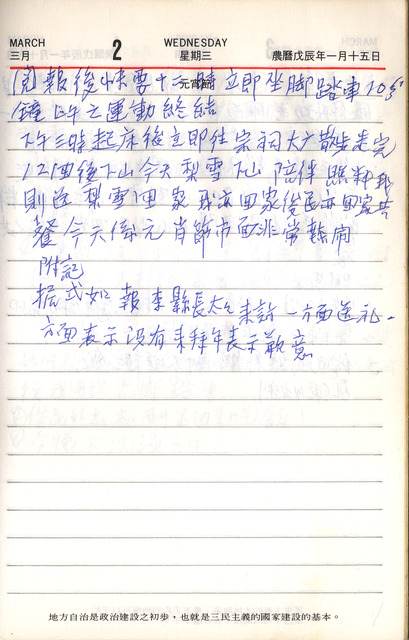 MARCH 2 WEDNESDAY
三月 星期三 農曆戊辰年一月十五日
元宵節
報後快要十二時立即坐脚踏車10分
鐘上午之運動終結
下午三時起床後立即往宗祠大广散步走完
12回後下山今天梨雪下山陪伴照料我
則送梨雪回家我亦回家俊民亦回家共
餐今天係元肖節市面非常熱鬧
附記
据式如報李縣長太太來訪一方面送礼一
方面表示没有來拜年表示歉意
地方自治是政治建設之初步，也就是三民主義的國家建設的基本。